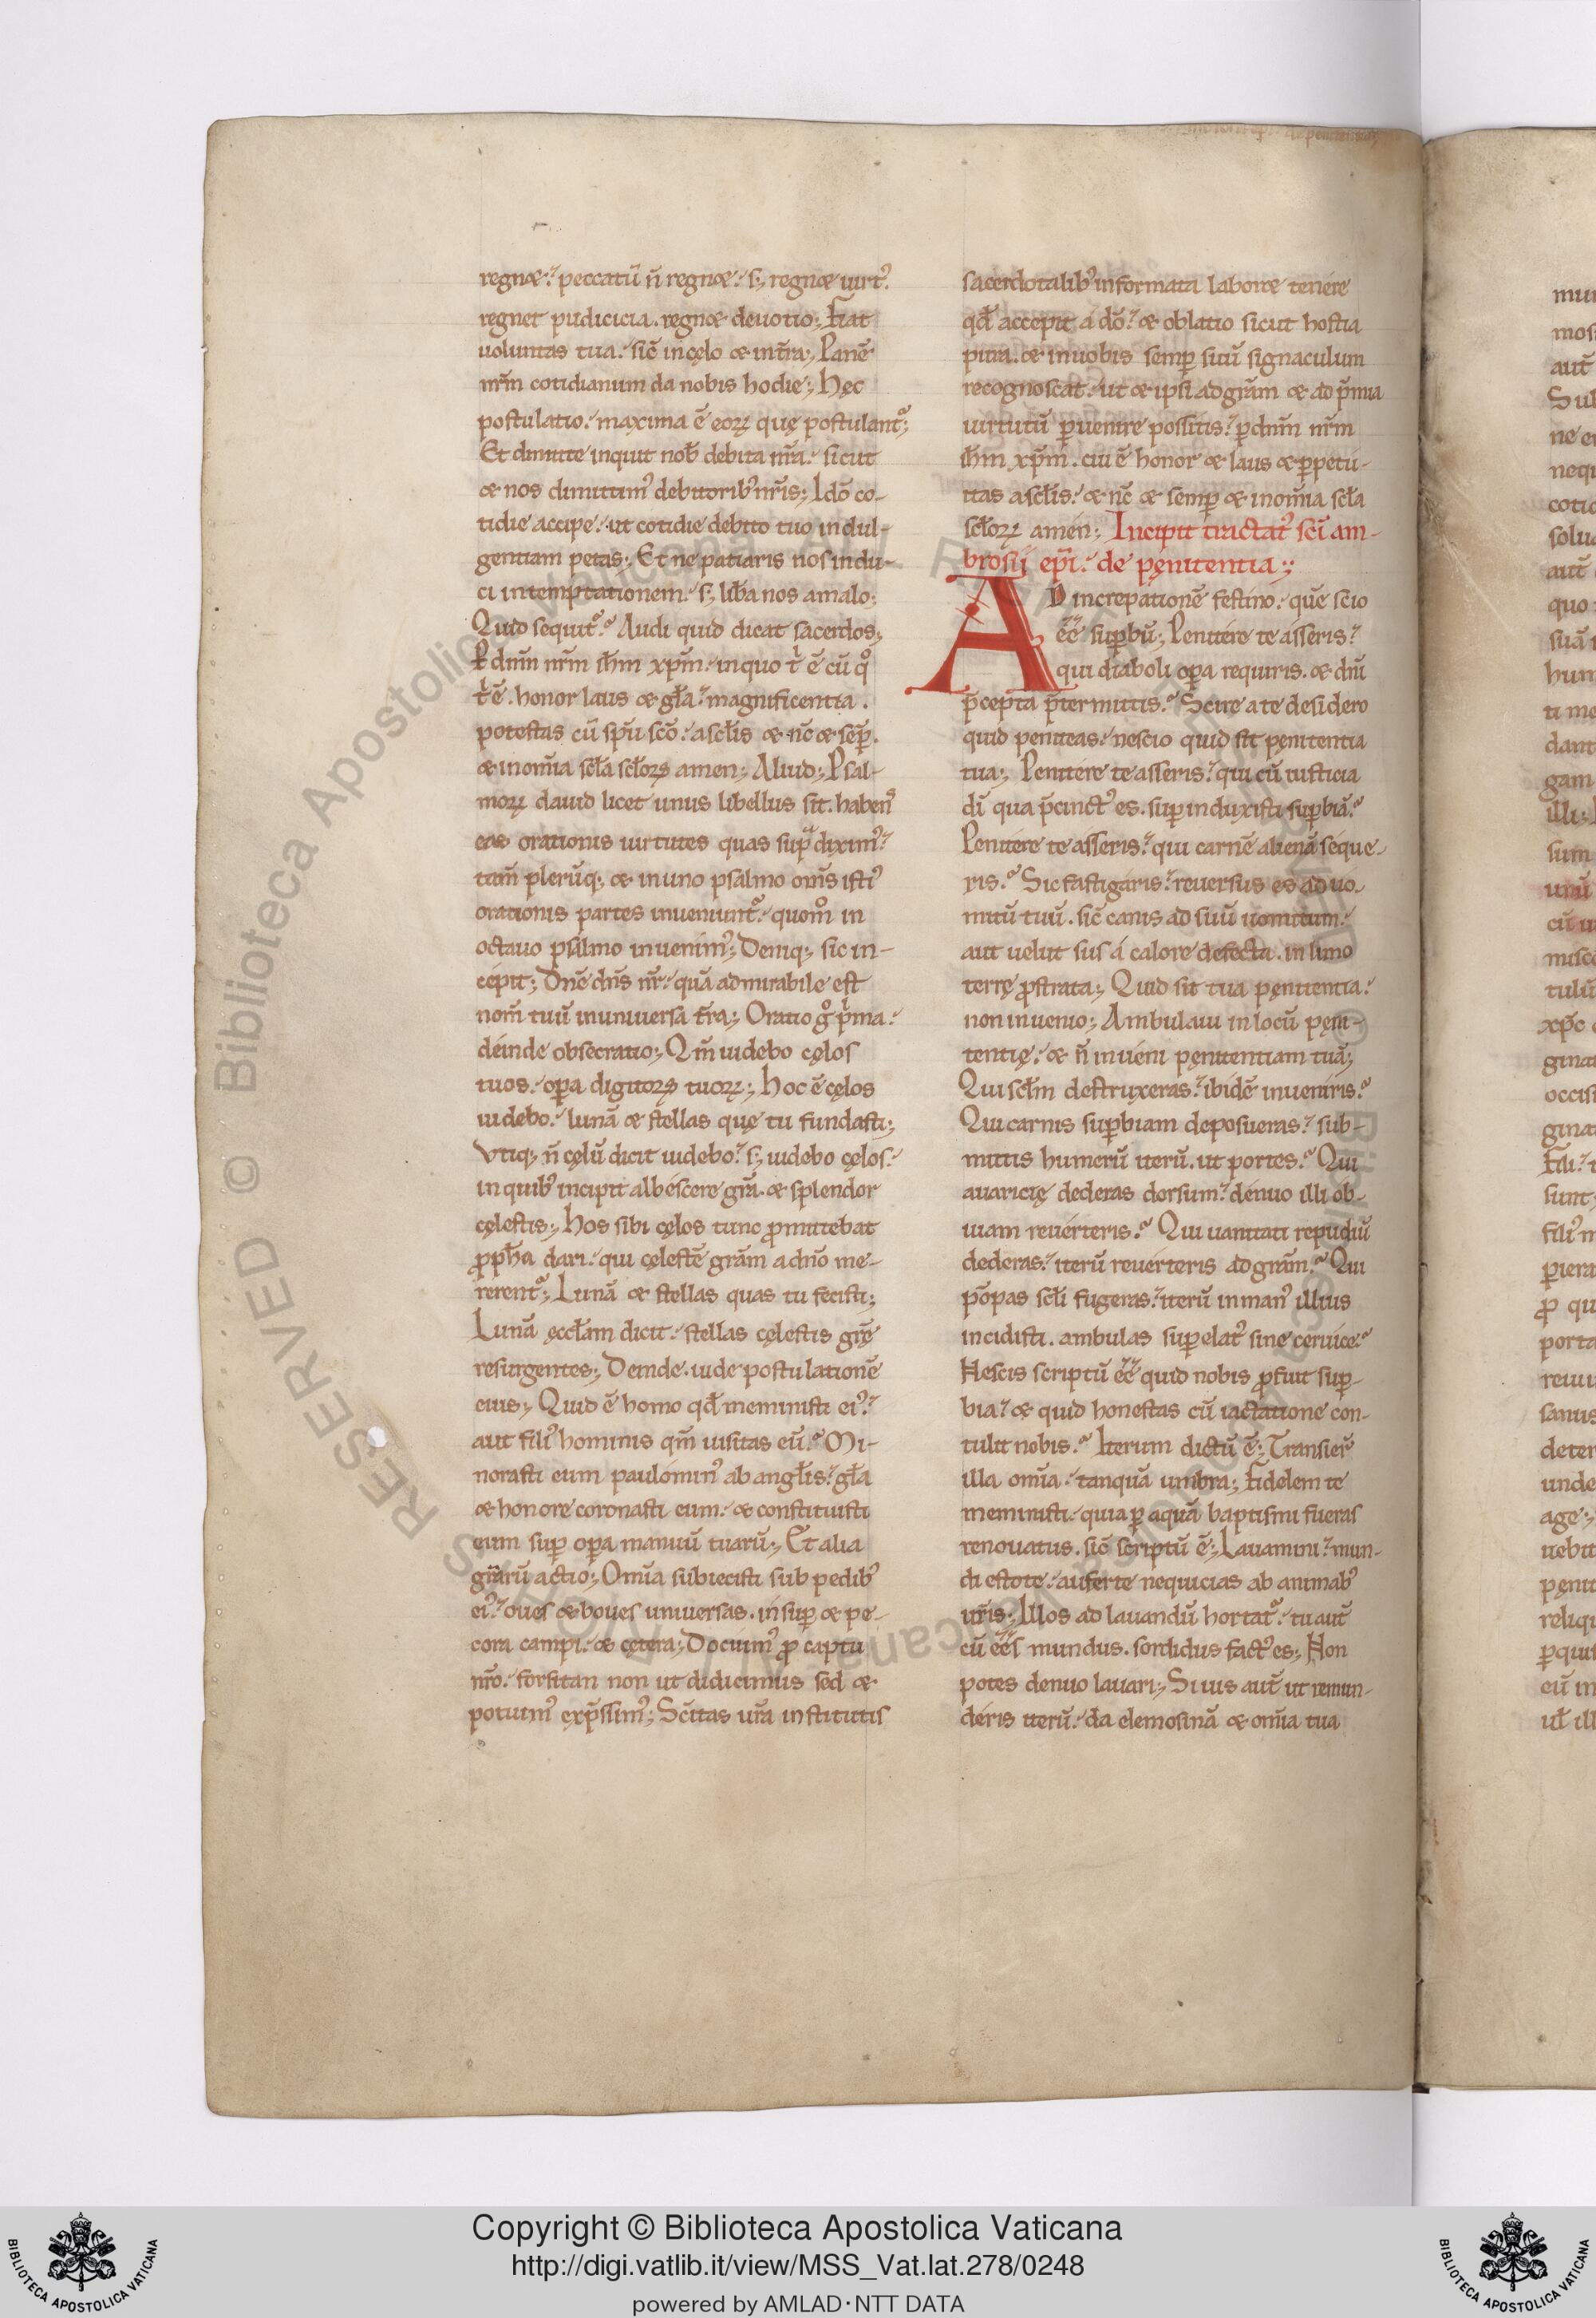 regnæ: peccatū n̄ regnæ: s; regnæ uirtꝰ.
regnet pudicicia. regnæ deuotio; Fiat
uoluntas tua. sic̄ in cęlo & in tr̄a; Panē
nr̄m cotidianum da nobis hodie; Hęc
postulatio. maxima ē eoꝝ quę postulant᷑;
Et dimitte inquit nob̄ debita nr̄a. sicut
& nos dimittimꝰ debitoribꝰ nr̄is; Idō co-
tidie accipe. ut cotidie debito tuo indul-
gentiam petas; Et ne patiaris nos indu-
ci in temptationem. s; lib̄a nos a malo;
Quid sequit᷑? Audi quid dicat sacerdos;
P dnm̄ nr̄m ih̄m xp̄m. in quo t̄ ē cū qͦ
t̄ ē. honor laus & gl̄a. magnificentia.
potestas cū sp̄u sc̄o. a scl̄is & nc̄ & semꝑ.
& in om̄ia scl̄a scl̄oꝝ amen; Aliud; Psal-
moꝝ dauid licet unus libellus sit. habenꝰ
eas orationis uirtutes quas supᵃ diximꝰ.
tam̄ plerūq; & in uno psalmo om̄s istiꝰ
orationis partes inueniunt᷑. quom̊ in
octauo psalmo inuenimꝰ; Deniq; sic in-
cépit; Dnē dn̄s nr̄. quā admirabile est
nom̄ tuū in uniuersa tr̄a; Oratio gͦ pͥma.
deinde obsecratio; Qm̄ uidebo cęlos
tuos. oꝑa digitoꝝ tuoꝝ; Hoc ē cęlos
uidebo. lunā & stellas quę tu fundasti;
Vtiq; n̄ cęlū dicit uidebo. s; uidebo cęlos.
in quibꝰ incipit albescere gr̄a. & splendor
cęlestis; Hos sibi cęlos tunc ꝓmittebat
ꝓph̄a dari. qui cęlestē gr̄am a dn̄o me-
rerent᷑; Lunā & stellas quas tu fecisti;
Lunā ęccl̄am dicit. stellas cęlestis grę̄
resurgentes; Deinde. uide postulationē
eius; Quid ē homo qd̄ meministi eiꝰ.
aut filiꝰ hominis qm̄ uisitas eū? Mi-
norasti eum paulóminꝰ ab angl̄is. gl̄a
& honore coronasti eum. & constituisti
eum suꝑ oꝑa manuū tuarū; Et alia
gr̄arū actio; Om̄ia subiecisti sub pedibꝰ
eiꝰ. oues & boues uniuersas. insuꝑ & pe-
cora campi. & cętera; Docuimꝰ ꝓ captu
nr̄o. forsitan non ut didicimus sed &
potuimꝰ exp̄ssimꝰ; Sc̄itas ur̄a institutis
sacerdotalibꝰ informata laboret tenére
qd̄ accepit á dō. & oblatio sicut hostia
pura. & in uobis semꝑ suū signaculum
recognoscat. ut & ipsi ad gr̄am & ad p̄mia
uirtutū ꝑuenire possitis. ꝑ dnm̄ nr̄m
ih̄m xp̄m. cui ē honor & laus & ꝑpetu-
itas a scl̄is. & nc̄ & semꝑ & in om̄ia scl̄a
scl̄oꝝ amen; Incipit tractatꝰ sc̄i am-
brosij ep̄i. de pęnitentia;
AD increpationē festino. quē scio
ēē suꝑbū; Penitére te ásseris.
qui diaboli oꝑa requiris. & dn̄i
p̄cepta p̄termittis? Scire a te desidero
quid peniteas. nescio quid sit pęnitentia
tua; Penitére te asseris. qui cū iusticia
dī qua p̄cinctꝰ es. suꝑinduxisti suꝑbiā?
Penitére te asseris. qui carnē alienā séque-
ris? Sic fastigáris. reuersus es ad uo-
mitū tuū. sic̄ canis ad suū uomitum.
aut uelut sus á calore defecta. in limo
terrę ꝓstrata; Quid sit tua pęnitentia.
non inuenio; Ambulaui in locū pęni-
tentię. & n̄ inuéni pęnitentiam tuā;
Qui scl̄m destruxeras. ibidē inueniris?
Qui carnis suꝑbiam deposueras. sub-
mittis humerū iterū. ut portes? Qui
auaricię dederas dorsum. dénuo illi ob-
uiam reuérteris? Qui uanitati repudiū
dederas. iterū reuérteris ad gr̄am? Qui
pōpas scl̄i fugeras. iterū in manꝰ illius
incidisti. ambulas suꝑ elatꝰ sine ceruice?
Nescis scriptū ēē quid nobis ꝓfuit suꝑ-
bia. & quid honestas cū iactatione con-
tulit nobis? Iterum dictū ē; Transier̄
illa om̄ia. tanquā umbra; Fidelem te
meministi. quia ꝑ aquā baptismi fueras
renouatus. sic̄ scriptū ē; Lauamini. mun-
di estote. auferte nequicias ab animabꝰ
ur̄is; Illos ad lauandū hortat᷑. tu aut̄
cū ēēs mundus. sordidus factꝰ es; Non
potes denuo lauari; Si uis aut̄ ut emun-
déris iterū. da elemosinā & om̄ia tua
Copyright © Biblioteca Apostolica Vaticana
http://digi.vatlib.it/view/MSS_Vat.lat.278/0248
powered by AMLAD·NTT DATA